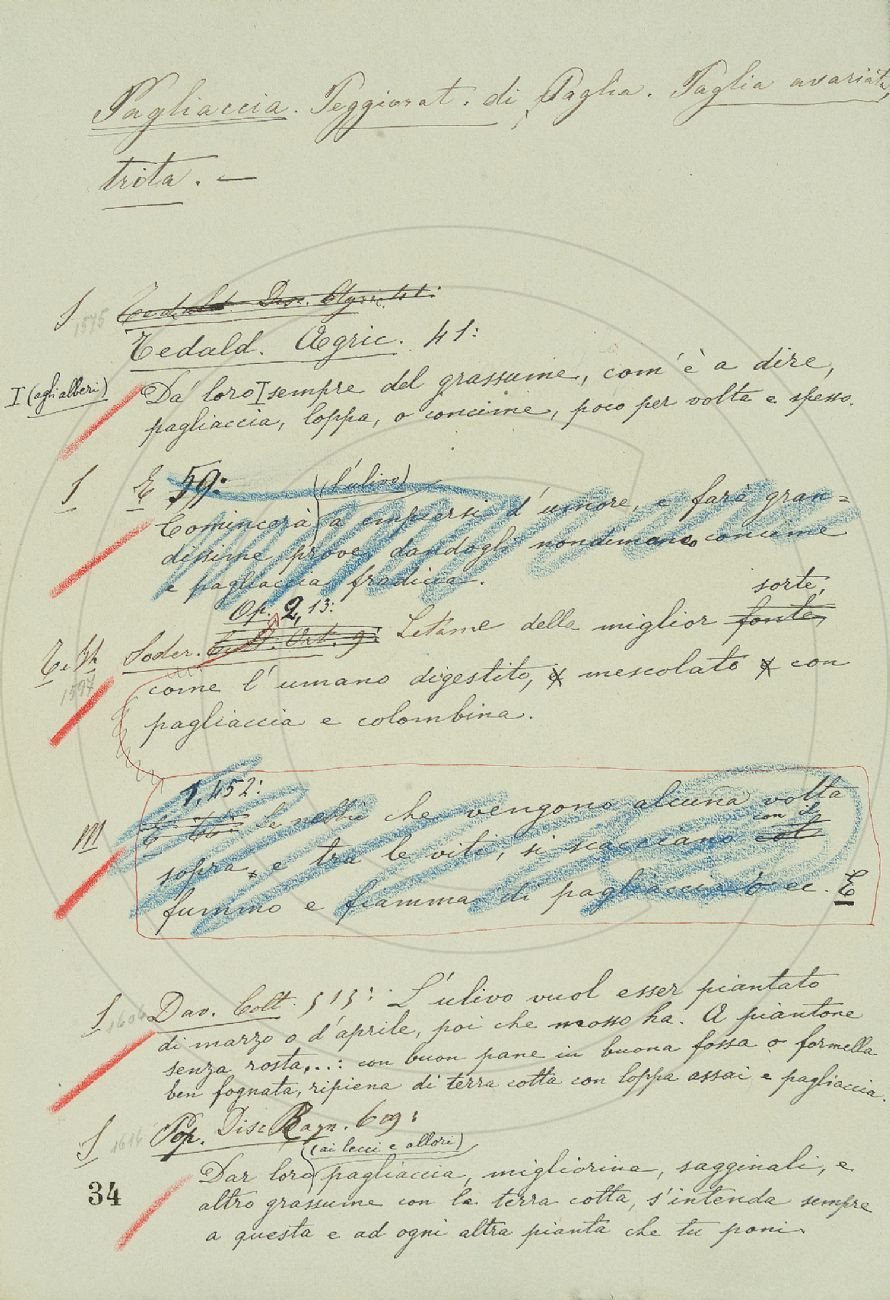 Pagliaccia. Peggiorat. di Paglia. Paglia avariata,
trita. —
S 1575 Tedald. Disc. Agric. 41:
Tedald. Agric. 41:
I (agli alberi) Da' loro I sempre del grassume, com'è a dire,
pagliaccia, loppa, o concime, poco per volta e spesso.
S E 59: (l'ulivo)
Comincerà a empiersi d'umore, e farà gran=
dissime prove, dandogli nondimeno concime
e pagliaccia fradicia.
Op. 2, 13: sorte,
T. 1597 Soder. Ort. 9: Letame della miglior fonte,
come l'umano digestito, e mescolato e con
pagliaccia e colombina.
1, 452:
M E Le nebbie che vengono alcuna volta
con il
sopra, e tra le viti, si scacciano col
fummo e fiamma di pagliaccia ec. E
S 1604 Dav. Colt. 513: L'ulivo vuol esser piantato
di marzo o d'aprile, poi che mosso ha. A piantone
senza rosta...: con buon pane in buona fossa o formella
ben fognata, ripiena di terra cotta con loppa assai e pagliaccia.
S 1616 Pop. Disc. Ragn. 609:
(ai lecci e allori)
Dar loro pagliaccia, migliorina, sagginali, e
altro grassume con la terra cotta, s'intenda sempre
a questa e ad ogni altra pianta che tu poni
34